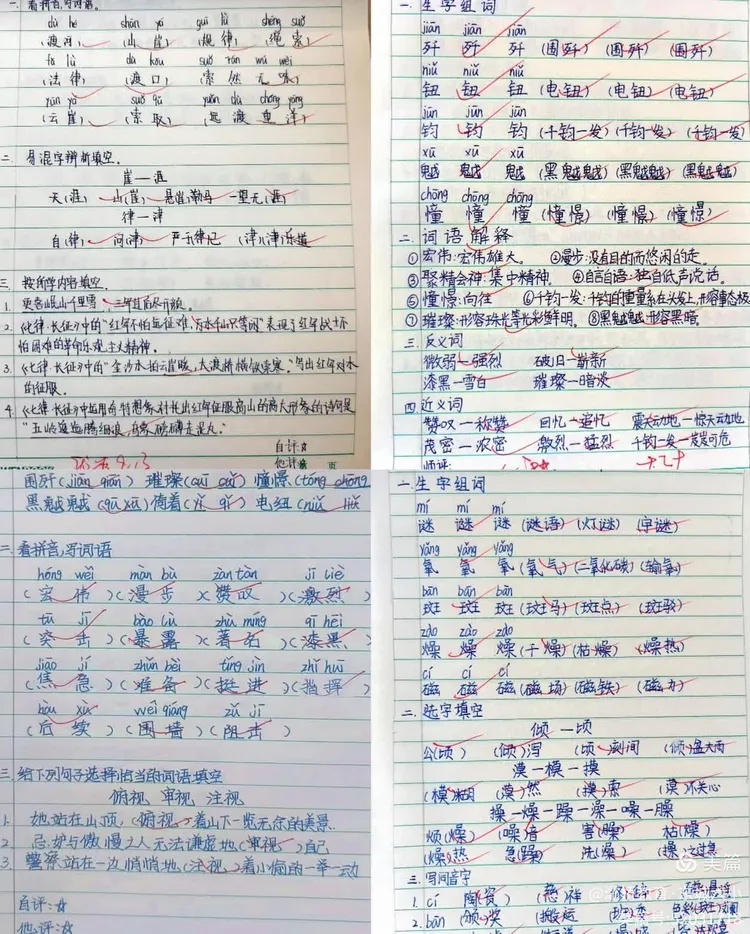 一、看拼音,写词语。
dù hé shān yá guī lǜ shéng suǒ
(渡河) (山崖) (规律) (绳索)
fǎ lǜ dù kǒu suǒ rán wú wèi
(法律) (渡口) (索然无味)
yún yá suǒ qǔ yuǎn dù chóng yáng
(云崖) (索取) (远渡重洋)
二、易混字辨析填空。
崖—涯
天(涯) (山崖) 悬(崖)勒马 一望无(涯)
律—津
自(律) 问(津) 严于(律)己 (津)(津)乐道
三、按所学内容填空。
1. 更喜岷山千里雪,三军过后尽开颜。
2. 《七律·长征》中的“红军不怕远征难,万水千山只等闲”表现了红军战士不
怕困难的革命乐观主义精神。
3. 《七律·长征》中的“金沙水拍云崖暖,大渡桥横铁索寒。”写出红军对水
的征服。
4. 《七律·长征》中运用奇特想象,衬托出红军征服高山的高大形象的诗句是
“五岭逶迤腾细浪,乌蒙磅礴走泥丸。”
自评:☆
他评:
9.13
一、生字组词
jiān jiān jiān
歼 歼 歼 (围歼) (围歼) (围歼)
niǔ niǔ niǔ
钮 钮 钮 (电钮) (电钮) (电钮)
jūn jūn jūn
钧 钧 钧 (千钧一发) (千钧一发) (千钧一发)
xū xū xū
魆 魆 魆 (黑魆魆) (黑魆魆) (黑魆魆)
chōng chōng chōng
憧 憧 憧 (憧憬) (憧憬) (憧憬)
二、词语解释
①宏伟:宏伟雄大。 ②漫步:没有目的而悠闲的走。
③聚精会神:集中精神。 ④自言自语:独自低声说话。
⑤憧憬:向往 ⑥千钧一发:千钧的重量系在头发上,形容事态极
⑦璀璨:形容珠光等光彩鲜明。 ⑧黑魆魆:形容黑暗。
三、反义词
微弱—强烈 破旧—崭新
漆黑—雪白 璀璨—暗淡
四、近义词
赞叹—称赞 回忆—追忆 震天动地—惊天动地
茂密—浓密 激烈—猛烈 千钧一发—岌岌可危
师评:
围歼(jiān qiān) 璀璨(cuī cuǐ) 憧憬(tóng chōng
黑魆魆(qū xū) 倚着(yǐ qǐ) 电纽(niǔ
二、看拼音,写词语
hóng wěi màn bù zàn tàn jī liè
(宏伟)(漫步)(赞叹)(激烈)
tū jī bào lù zhù míng qī hēi
(突击)(暴露)(著名)(漆黑)
jiāo jí zhǔn bèi tǐng jìn zhǐ huī
(焦急)(准备)(挺进)(指挥)
hòu xù wéi qiáng zǔ jī
(后续)(围墙)(阻击)
三、给下列句子选择恰当的词语填空
俯视 审视 注视
1. 她站在山顶,(俯视)着山下一览无余的美景.
2. 忌妒与傲慢之人无法谦虚地(审视)自己
3. 警察站在一边悄悄地(注视)着小偷的一举一动
自评:☆
他评:☆
一、生字组词
mí mí mí
谜 谜 谜 (谜语) (灯谜) (字谜)
yǎng yǎng yǎng
氧 氧 氧 (氧气) (二氧化碳) (输氧)
bān bān bān
斑 斑 斑 (斑马) (斑点) (斑驳)
zào zào zào
燥 燥 燥 (干燥) (枯燥) (燥热)
cí cí cí
磁 磁 磁 (磁场) (磁铁) (磁力)
二、选字填空
倾—顷
公(顷) (倾)泻 (顷)刻间 (倾)盆大雨
漠—模—摸
(模)糊 (漠)然 (摸)索 (漠)不关心
操—燥—躁—澡—噪—臊
烦(燥) (噪)音 害(臊) 枯(燥)
(燥)热 急(躁) 洗(澡) (操)
三、写同音字
1. cí 陶(瓷) (慈)祥
2. bān (颁)奖 (搬)运 班 色彩(斑)斓
美篇